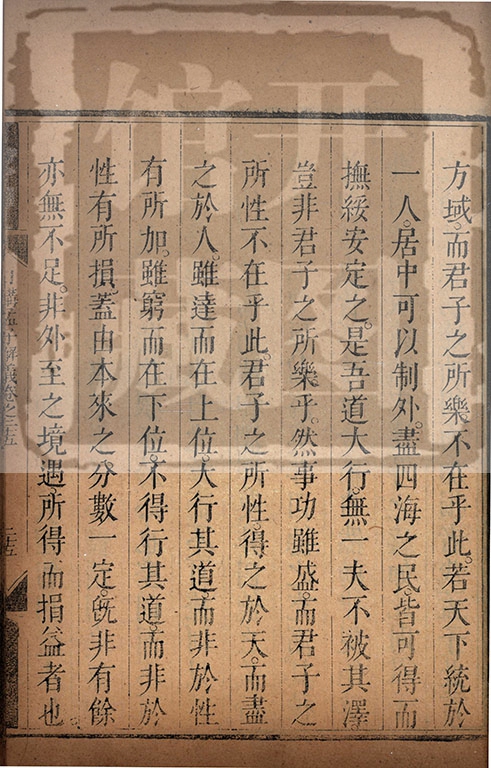 方域而君子之所樂不在乎此若天下統於
一人居中可以制外盡四海之民皆可得而
撫綏安定之是吾道大行無一夫不被其澤
豈非君子之所樂乎然事功雖盛而君子之
所性不在乎此君子之所性得之於天而盡
之於人雖達而在上位大行其道而非於性
有所加雖窮而在下位不得行其道而非於
性有所損蓋由本來之分數一定既非有餘
亦無不足非外至之境遇所得而損益者也
日講孟子解義卷之二十五